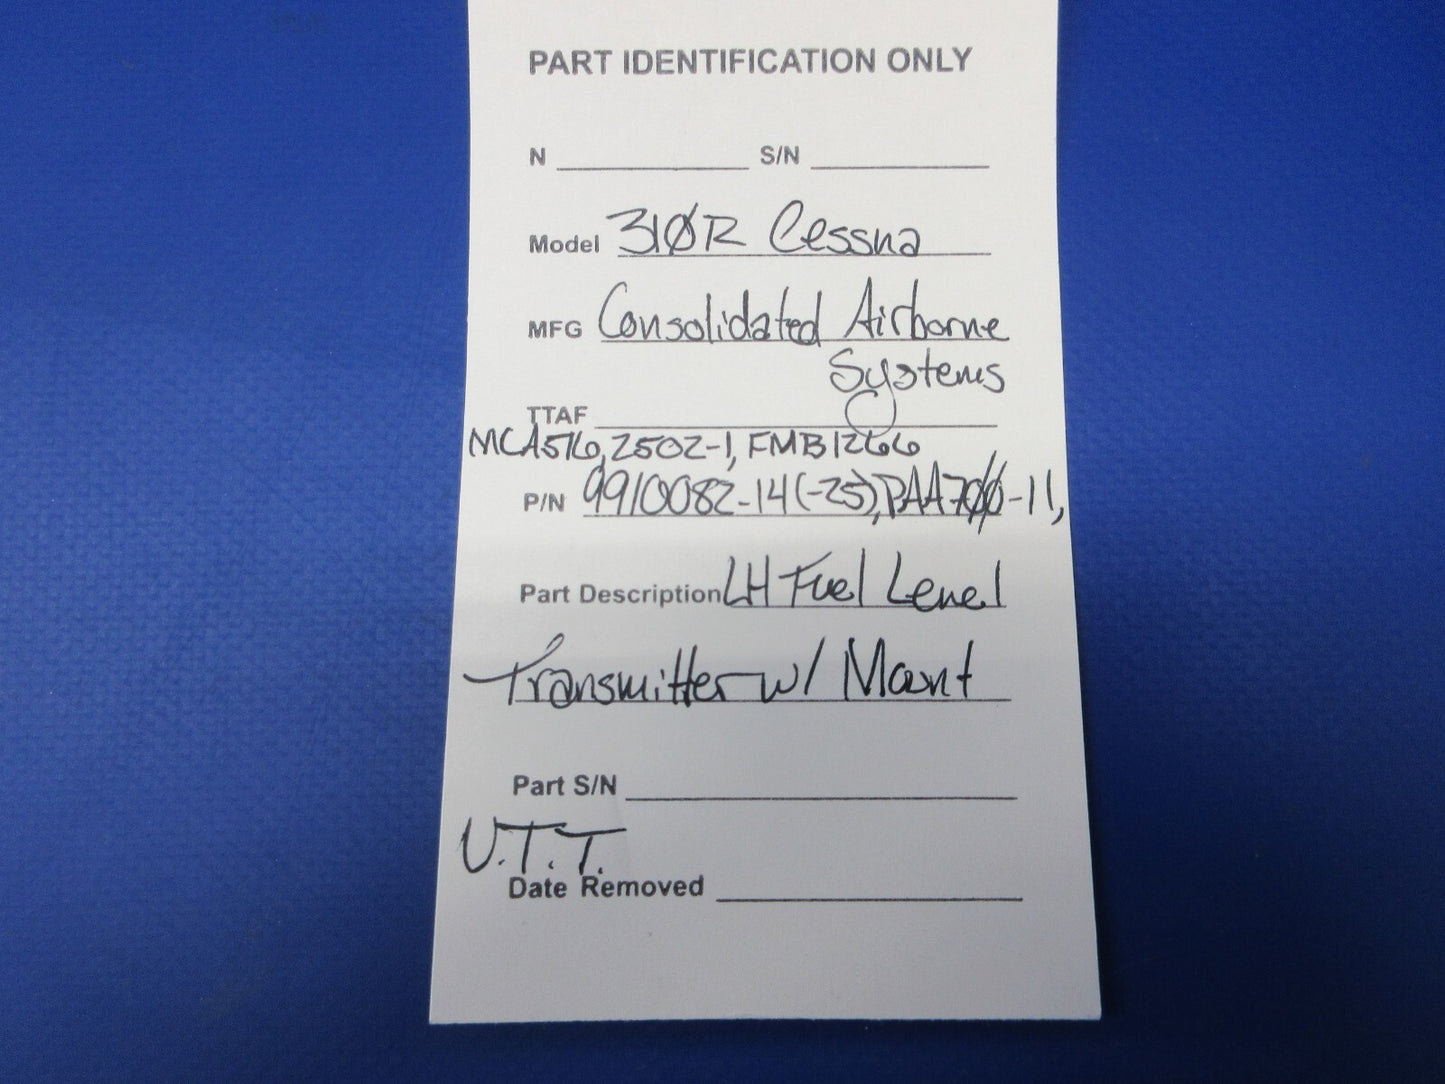 PART IDENTIFICATION ONLY
N S/N
Model 310R Cessna
MFG Consolidated Airborne
Systems
TTAF
MCA516, 2502-1, FMB1266
P/N 9910082-14(-25), PAA700-11,
Part Description LH Fuel Level
Transmitter w/ Mount
Part S/N
U.T.T.
Date Removed